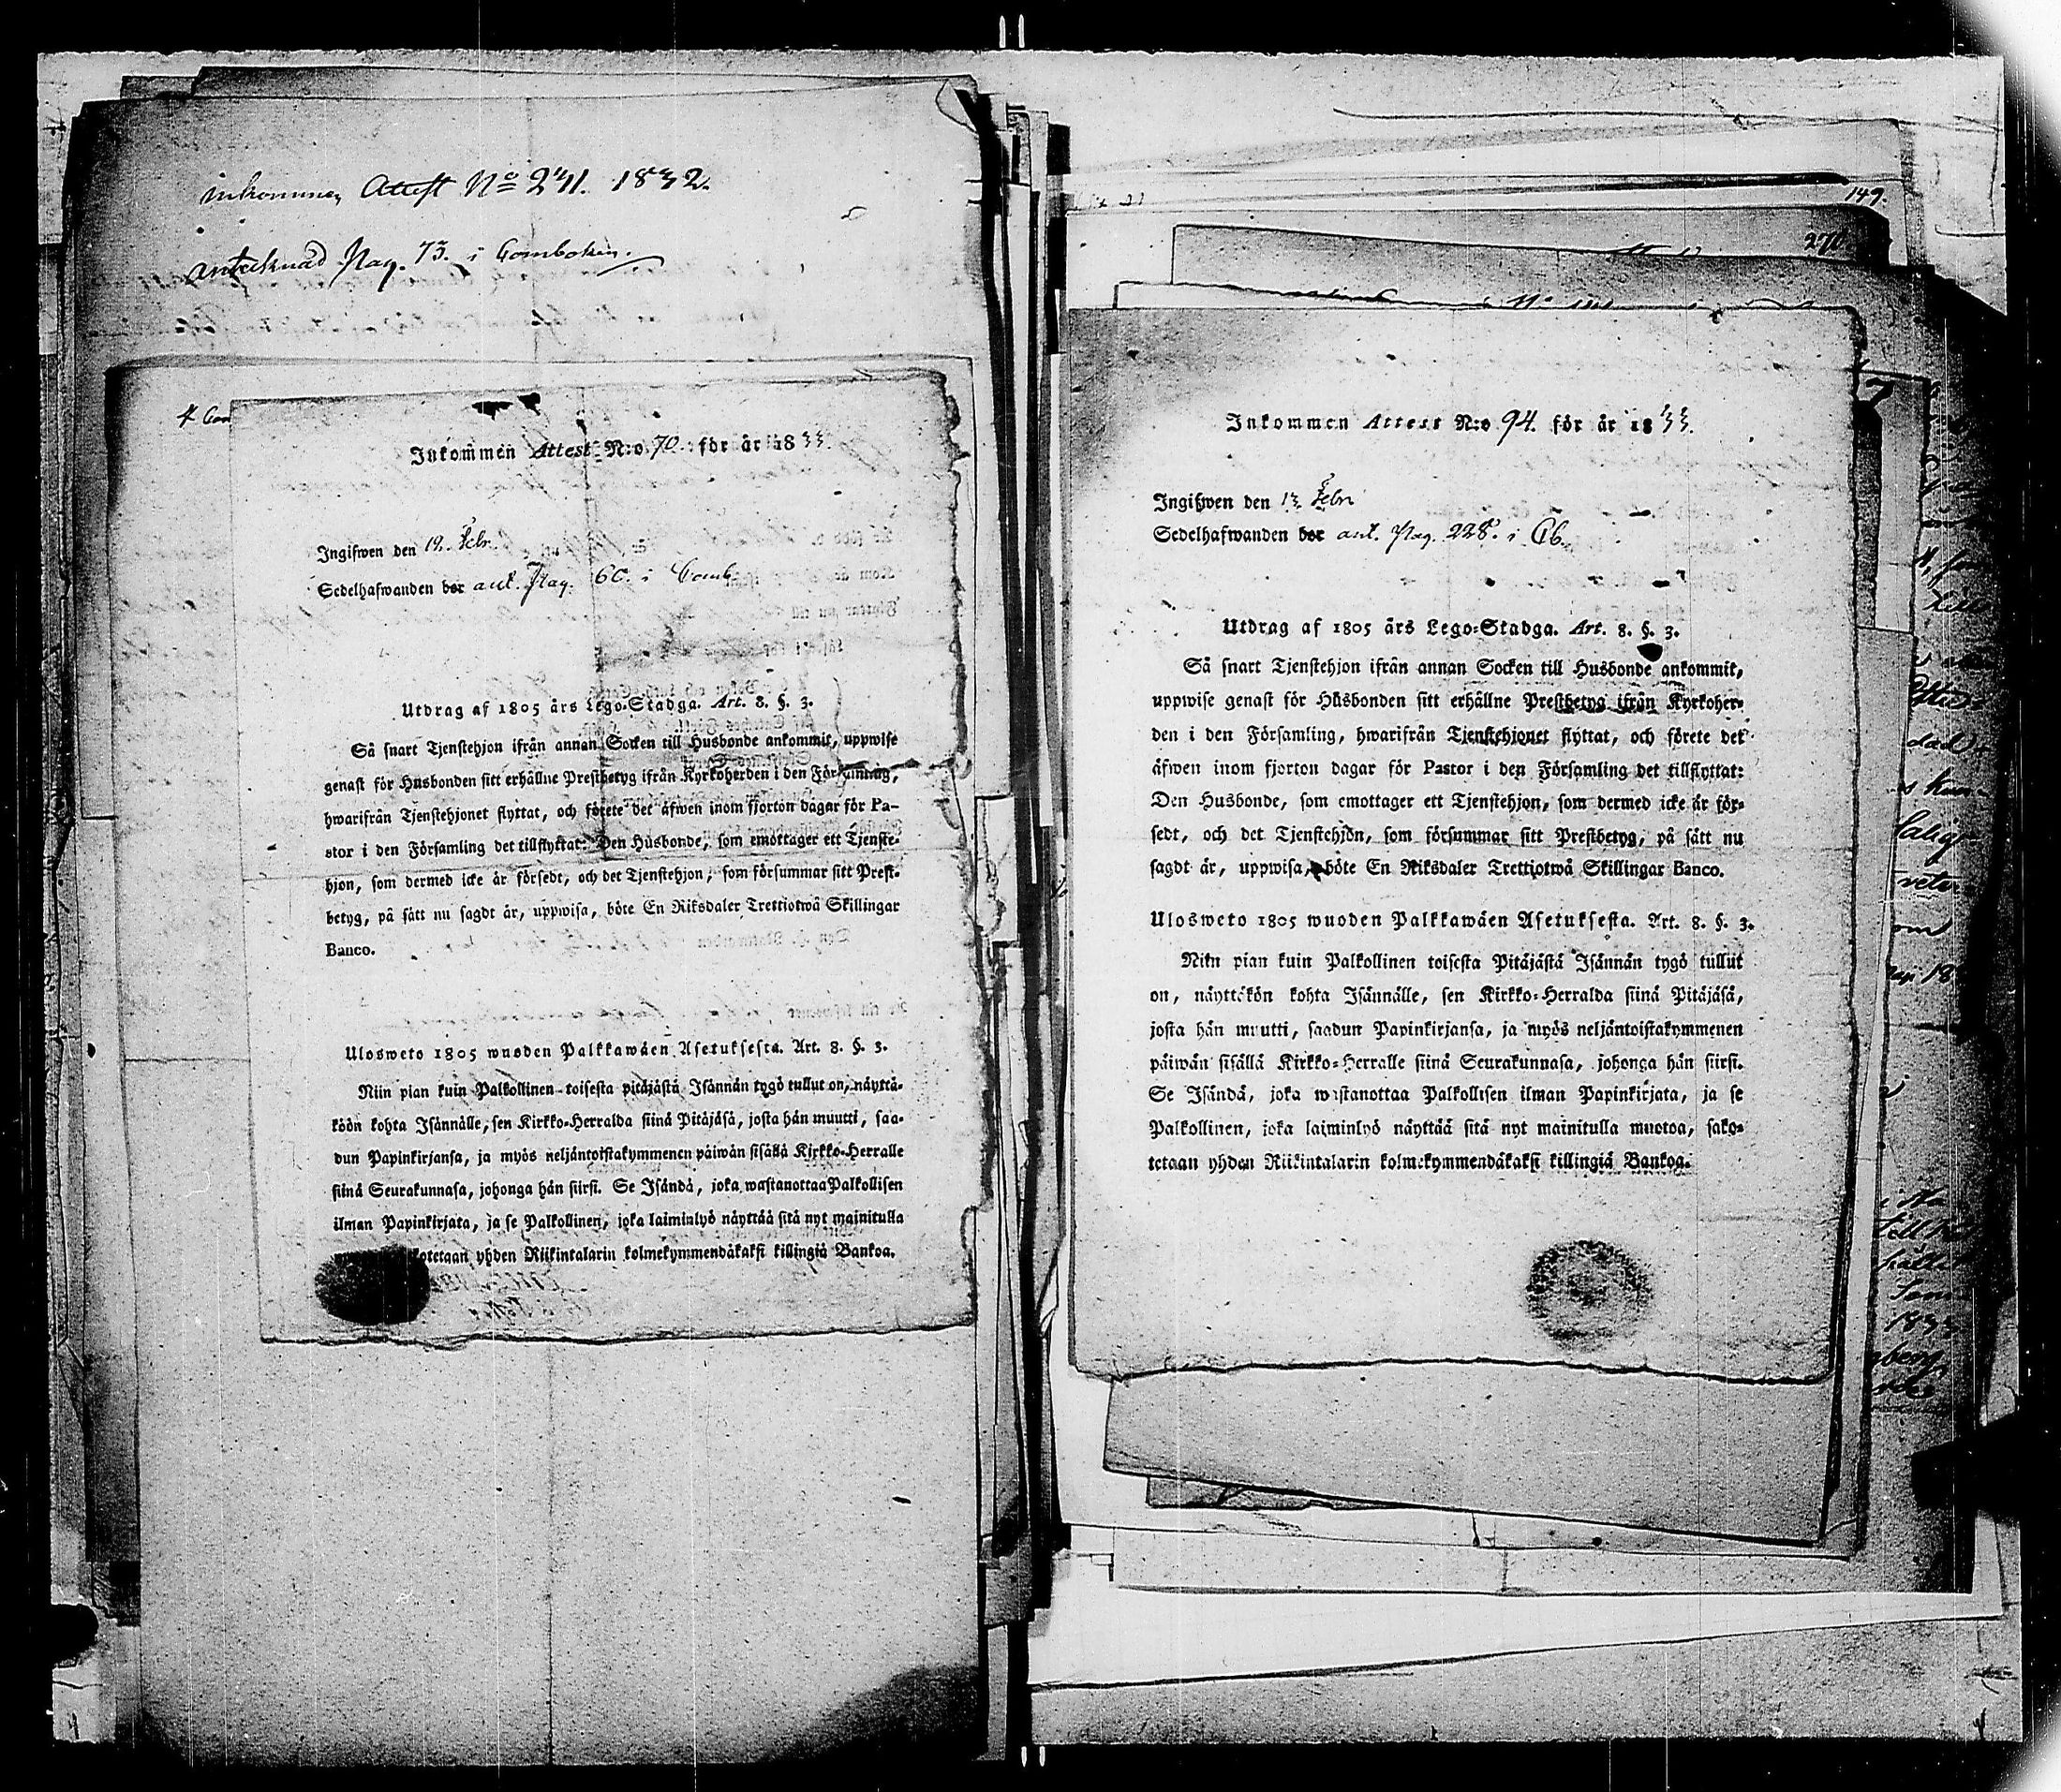 inkommen Attest No 241. 1832.
antecknad Pag. 73. i Comboken.
Inkommen Attest N:o 70. för år 1833.
Ingifwen den 12. Febr.
Sedelhafwanden bor ant. Pag. 60. i Comb.
Utdrag af 1805 års Lego-Stadga. Art. 8. §. 3.
Så snart Tjenstehjon ifrån annan Socken till Husbonde ankommit, uppwise
genast för Husbonden sitt erhållne Prestbetyg ifrån Kyrkoherden i den Församling,
hwarifrån Tjenstehjonet flyttat, och förete det äfwen inom fjorton dagar för Pa-
stor i den Församling det tillflyttat: Den Husbonde, som emottager ett Tjenste-
hjon, som dermed icke är försedt, och det Tjenstehjon, som försummar sitt Prest-
betyg, på sätt nu sagdt är, uppwisa, böte En Riksdaler Trettiotwå Skillingar
Banco.
Ulosweto 1805 wuoden Palkkawäen Asetuksesta. Art. 8. §. 3.
Niin pian kuin Palkollinen toisesta pitäjästä Isännän tygö tullut on, näyttä-
köön kohta Isännälle, sen Kirkko-Herralda siinä Pitäjäsä, josta hän muutti, saa-
dun Papinkirjansa, ja myös neljäntoistakymmenen päiwän sisällä Kirkko-Herralle
siinä Seurakunnasa, johonga hän siirsi. Se Isändä, joka wastanottaa Palkollisen
ilman Papinkirjata, ja se Palkollinen, joka laiminlyö näyttää sitä nyt mainitulla
kotetaan yhden Riikintalarin kolmekymmendäkaksi killingiä Bankoa.
149.
270
Inkommen Attest N:o 94. för år 1833.
Ingifwen den 13. Febr
Sedelhafwanden bor ant. Pag. 228. i Cb.
Utdrag af 1805 års Lego-Stadga. Art. 8. §. 3.
Så snart Tjenstehjon ifrån annan Socken till Husbonde ankommit,
uppwise genast för Husbonden sitt erhållne Prestbetyg ifrån Kyrkoher-
den i den Församling, hwarifrån Tjenstehjonet flyttat, och förete det
äfwen inom fjorton dagar för Pastor i den Församling det tillflyttat:
Den Husbonde, som emottager ett Tjenstehjon, som dermed icke är för-
sedt, och det Tjenstehjon, som försummar sitt Prestbetyg, på sätt nu
sagdt är, uppwisa, böte En Riksdaler Trettiotwå Skillingar Banco.
Ulosweto 1805 wuoden Palkkawäen Asetuksesta. Art. 8. §. 3.
Niin pian kuin Palkollinen toisesta Pitäjästä Isännän tygö tullut
on, näyttäkön kohta Isännälle, sen Kirkko-Herralda siinä Pitäjäsä,
josta hän muutti, saadun Papinkirjansa, ja myös neljäntoistakymmenen
päiwän sisällä Kirkko-Herralle siinä Seurakunnasa, johonga hän siirsi.
Se Isändä, joka wastanottaa Palkollisen ilman Papinkirjata, ja se
Palkollinen, joka laiminlyö näyttää sitä nyt mainitulla muotoa, sako-
tetaan yhden Riikintalarin kolmekymmendäkaksi killingiä Bankoa.